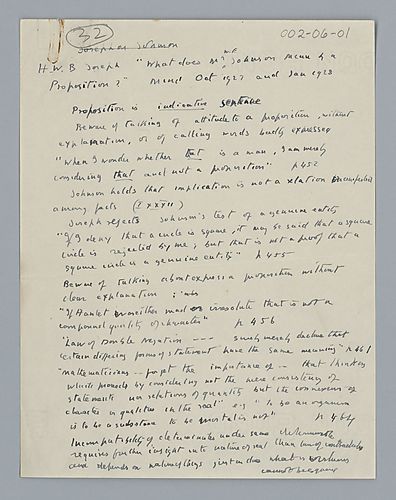 32
002-06-01
Joseph on Johnson
H.W.B Joseph "What does Mr Johnson mean by a
Proposition?" Mind Oct 1927 and Jan 1928
Proposition is indicative sentence
Beware of talking of attitude to a proposition, without
explanation, or of calling words badly expressed
"When I wonder whether that is a man, I am merely
considering that and not a proposition" p 452
Johnson holds that implication is not a relation
among facts (I xxxii)
Joseph rejects Johnson's test of a genuine entity
"If I deny that a circle is square, it may be said that a square
circle is rejected by me; but that is not a proof that a
square circle is a genuine entity" p 455
Beware of talking about a proposition without
clear explanation :
"If Hamlet irresolute that is not a
compound quality of character" p 456
"Law of Double Negation --- surely merely declare that
certain differing forms of statement have the same meaning" p 461
"Mathematicians -- forget the importance of -- that thinking
which proceeds by considering not the mere consistency of
statements nor relations of quantity but the connexion of
characters or qualities in the real" e.g. "to be an organism
is to be a substance to be mortal is not" p 464
Incompatibility of determinates under same determinable
requires further insight into nature of real than law of contradiction
and depends on nature of just as does what is
cannot be square